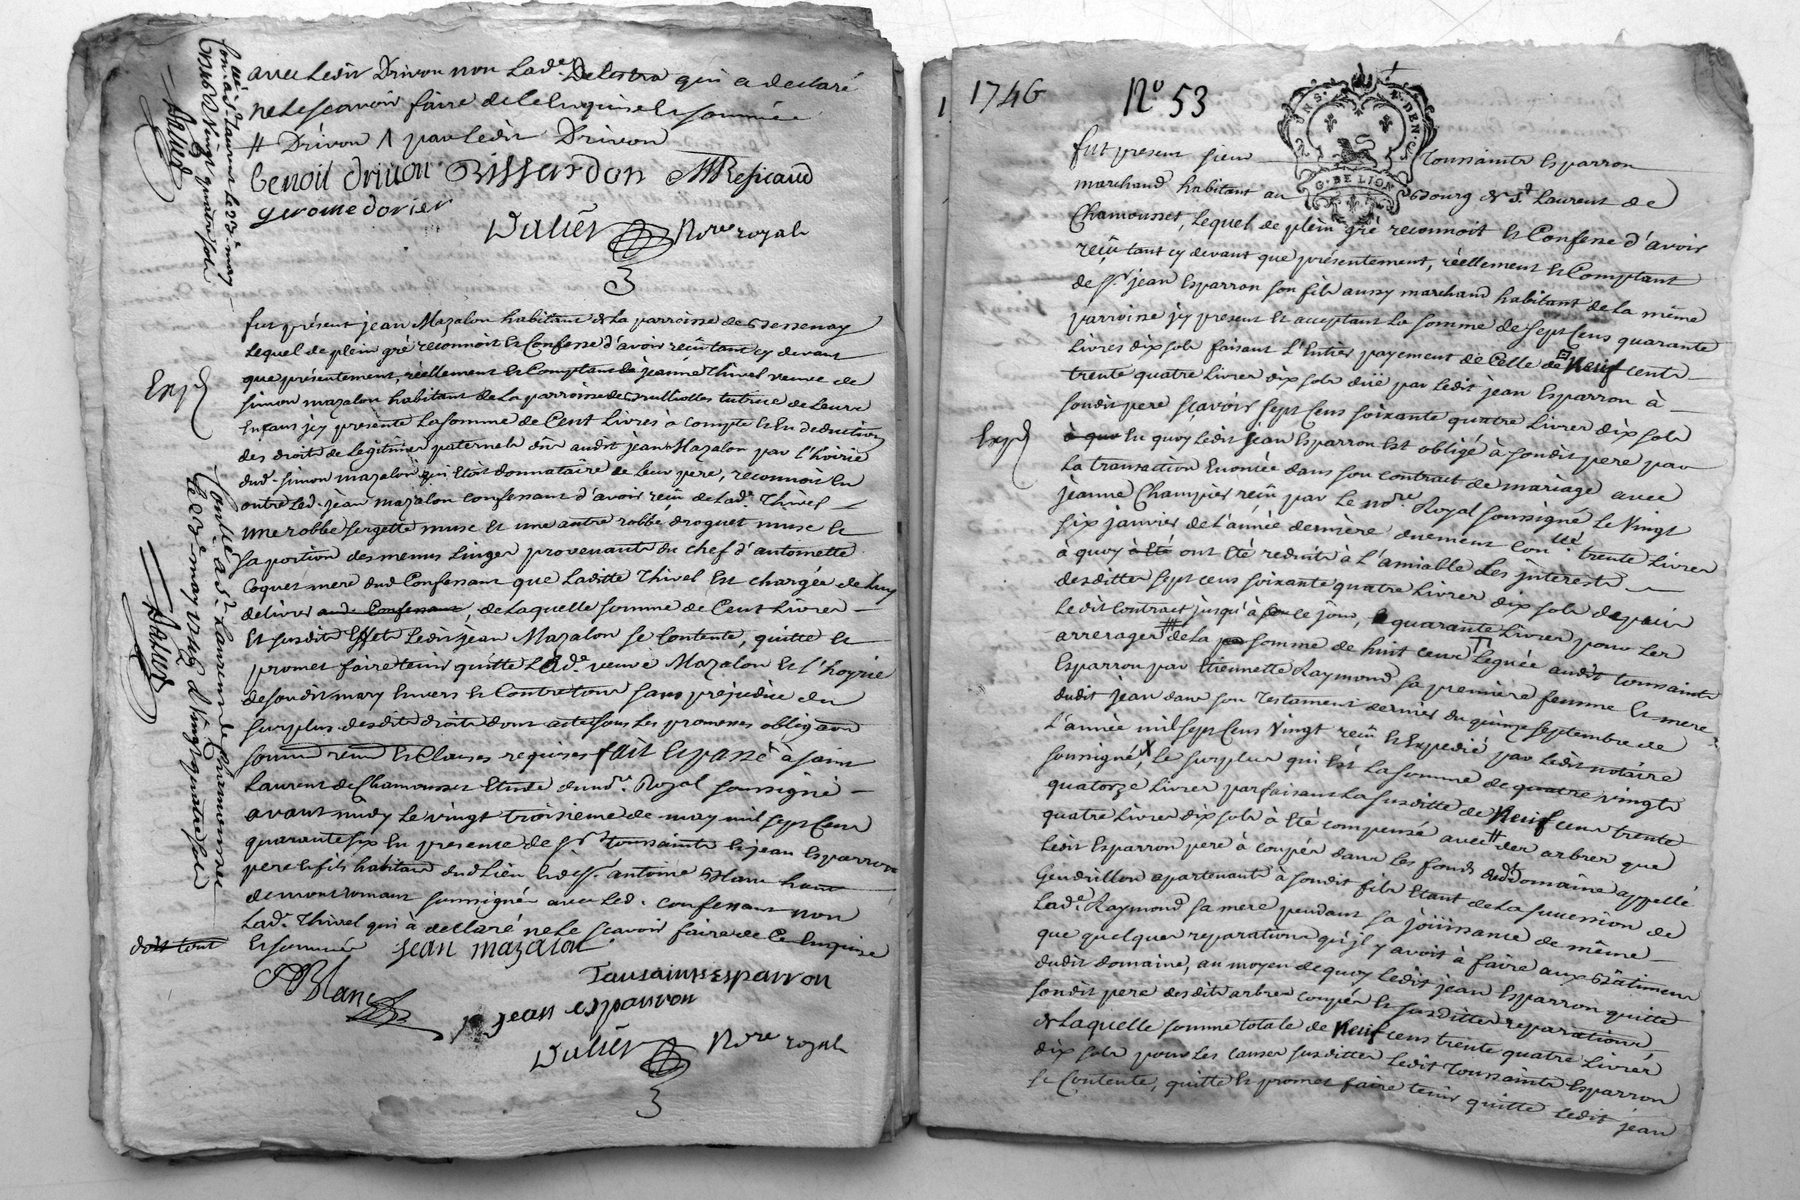 avec ledit Drivon non Lade. Delestra qui a declaré
ne le scavoir faire de ce Enquise et sommée
# Drivon Λ par ledit Drivon
benoit drivon Bissardon MRepicaud
gerome dorier
Dulier Nore royal
Conlé à St Laurens le 23e may
1746 R Vingt quatre sols
fut présent jean Mazalon habitant de la parroisse de Bessenay
Lequel de plein gré reconnoit et Confesse d'avoir reçu tant cy devant
que présentement, réellement et Comptant de jeanne Thivel veuve de
simon mazalon habitant de la parroisse de Brullioles tutrice de leurs
Enfans jcy presente La somme de Cent Livres à compte et En deduction
des droits de Légitime paternels dus audit jean Mazalon par l'hoirie
dud. simon mazalon qui Etoit donnataire de leur pere, reconnoit En
outre Led. jean mazalon confessant d'avoir reçu de Lade. Thivel
une robbe sergette muse et une autre robbe droguet muse et
sa portion des menus Linges provenants du chef d'antoinette
Coquet mere dud. Confessant que Laditte Thivel Est chargée de luy
delivrer aud. Confessant de Laquelle somme de Cent Livres
Et susdits Effets Ledit jean Mazalon se Contente, quitte et
promet faire tenir quitte Lade. veuve Mazalon et l'hoyrie
de sondit mary Envers et Contre tous sans prejudice du
surplus desdits droits dont acte sous les promesses obligaon
soumon renon et Clauses requises fait et passé à saint
Laurent de Chamousset Etude du nore. Royal soussigné
avant midy Le vingt troisieme de may mil sept Cens
quarante six En presence de sr. toussaints et jean Esparron
pere et fils habitans dud. Lieu et de sr. antoine Blanc
de montromant soussignés avec Led. confessant non
Lade. Thivel qui à declaré ne Le scavoir faire de Ce Enquise
Et sommée jean mazalon
Expé
Conlé a St Laurens de Chamousset
le 23e may 1746 R Vingt quatre sols
doit tout
ABlanc
Tousaints esparron
jean esparron
Dulier Nore royal
1746 No 53
G. DE LION
fut présent sieur Toussaints Esparron
marchand habitant au Bourg de St. Laurent de
Chamousset, Lequel de plein gré reconnoit et Confesse d'avoir
reçu tant cy devant que présentement, réellement et Comptant
de sr. jean Esparron son fils aussy marchand habitant de la même
parroisse jcy present et acceptant La somme de sept Cens quarante
Livres dix sols faisant L'Entier payement de Celle de Neuf cents
trente quatre Livres dix sols düe par ledit jean Esparron à
sondit pere sçavoir sept Cens soixante quatre Livres dix sols
à quoy En quoy Ledit jean Esparron Est obligé à sondit pere par
La transaction Enoncée dans son contract de mariage avec
jeanne Champier reçû par Le nore. Royal soussigné Le Vingt
six janvier de L'année dernière duement Conlé. trente Livres
à quoy à Eté ont Eté reduits à L'amiable Les jnterests
desdittes sept cens soixante quatre Livres dix sols depuis
Ledit Contract jusqu'à ce jour, quarante Livres pour Les
arrerages # de La somme de huit cens Leguée audit toussaints
Esparron par Etiennette Raymond sa première femme Et mere
dudit jean dans son Testament dernier du quinze septembre de
L'année mil sept Cens Vingt reçu Et Expedié par Ledit notaire
soussigné, X Le surplus qui Est La somme de quatre vingts
quatorze Livres parfaisant La susditte de Neuf cens trente
quatre Livres dix sols à Eté compensé avec # des arbres que
Ledit Esparron pere à coupés dans Les fonds dud. Domaine appellé
Gendrillon apartenants à sondit fils Etant de La succession de
Lade. Raymond sa mere pendant sa jouissance de même
que quelques reparations qu'jl y avoit à faire aux Bâtimens
dudit domaine, au moyen de quoy Ledit jean Esparron quitte
sondit pere desdits arbres coupés Et susdittes reparations
de Laquelle somme totale de Neuf cens trente quatre Livres
dix sols pour les causes susdittes Ledit Toussaints Esparron
se Contente, quitte Et promet faire tenir quitte Ledit jean
Expé